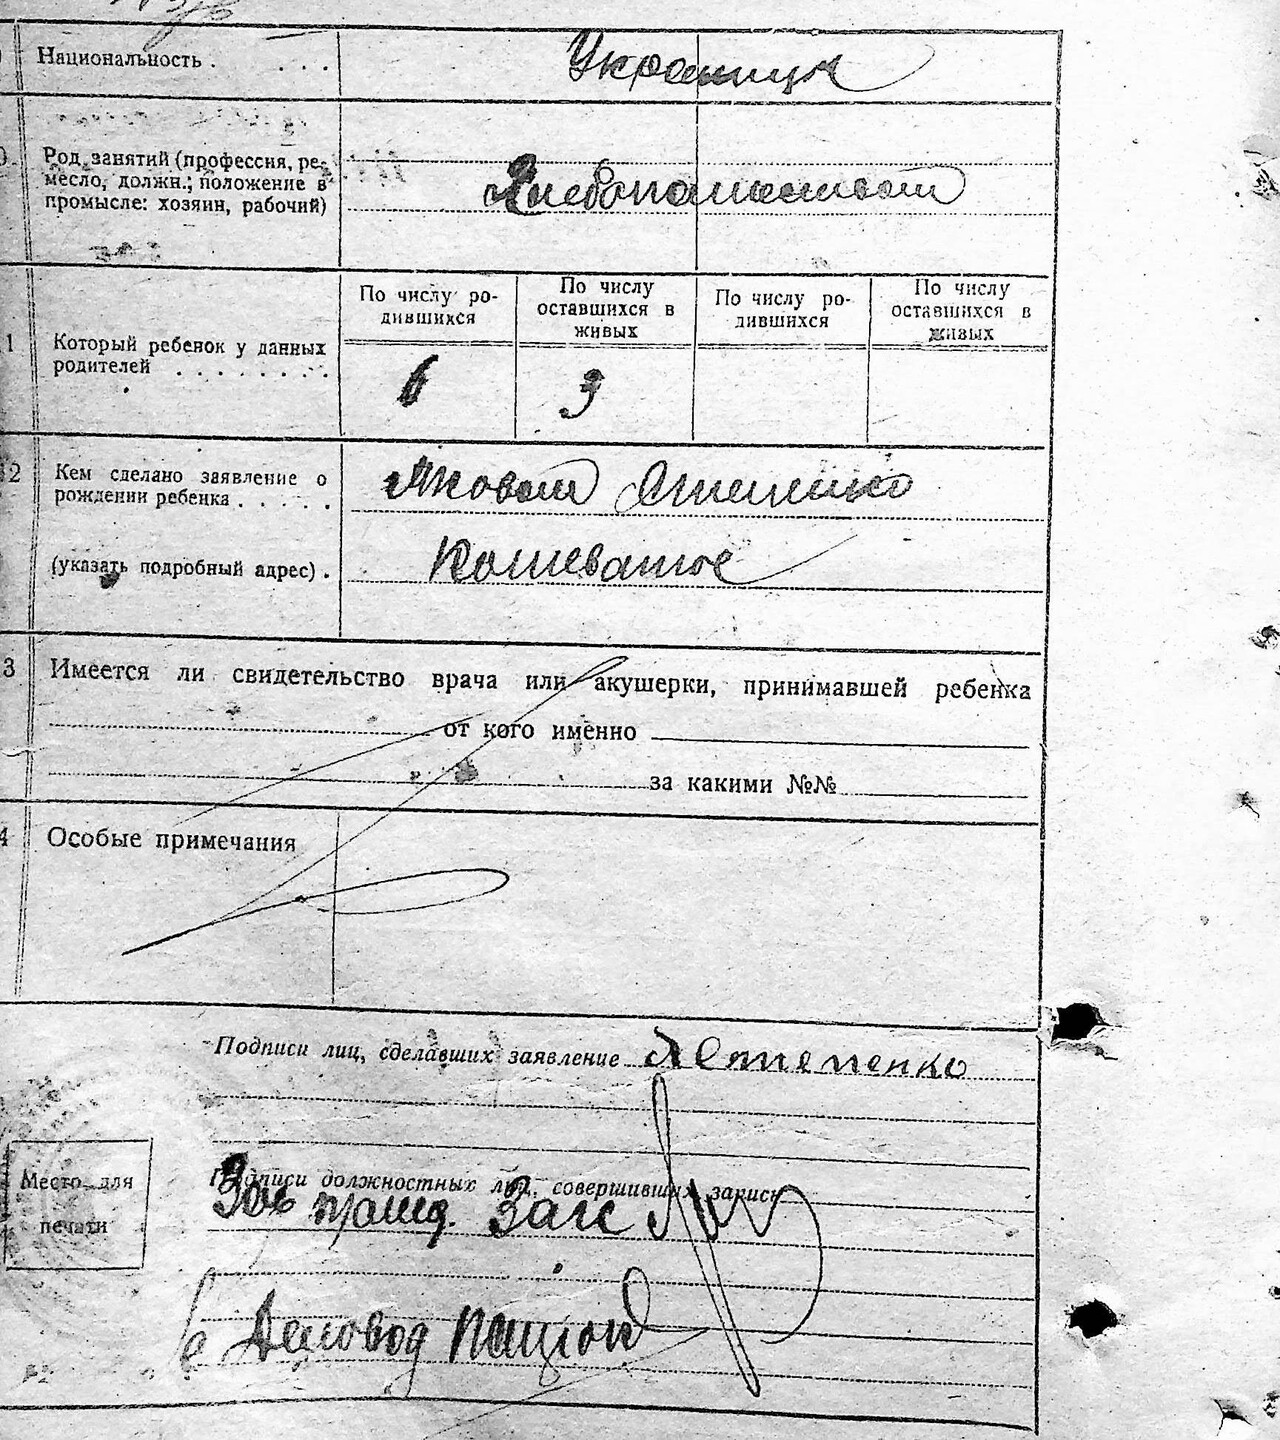 Национальность . . . .
Украинцы
Род занятий (профессия, ре-
месло, должн.; положение в
промысле: хозяин, рабочий)
Хлебопашеством
По числу ро-
дившихся
По числу
оставшихся в
живых
По числу ро-
дившихся
По числу
оставшихся в
живых
1 Который ребенок у данных
родителей . . . . . . . .
6 3
2 Кем сделано заявление о
рождении ребенка . . . . .
Яковом Степенко
(указать подробный адрес) .
Кошеватое
3 Имеется ли свидетельство врача или акушерки, принимавшей ребенка
от кого именно
за какими №№
4 Особые примечания
Подписи лиц, сделавших заявление Я Степенко
Место для
печати
Подписи должностных лиц, совершивших запись
Загс
Деловод